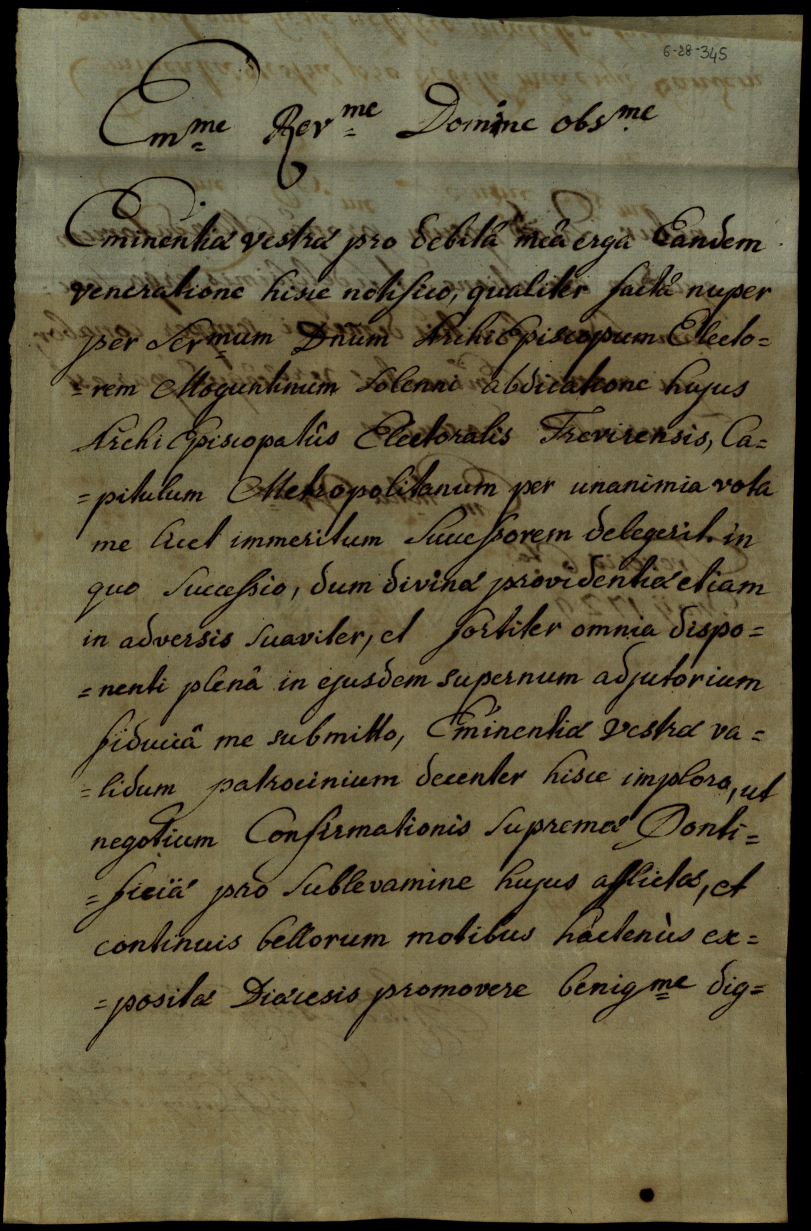 6-28-345
Em.me Rev.me Domine obs.me
Eminentiæ vestræ pro debitâ meâ erga Eandem
veneratione hisce notifico, qualiter factâ nuper
per Ser.mum Dnum Archi Episcopum Electo=
=rem Moguntinum solenni abdicatione hujus
Archi Episcopatûs Electoralis Trevirensis, Ca=
=pitulum Metropolitanum per unanimia vota
me licet immeritum Successorem delegerit. in
quo Successio, dum divinæ providentiæ etiam
in adversis suaviter, et fortiter omnia dispo=
=nenti plenâ in ejusdem supernum adjutorium
fiduciâ me submitto, Eminentiæ vestræ va=
=lidum patrocinium decenter hisce imploro, ut
negotium Confirmationis Supremæ Ponti=
=ficiæ pro sublevamine hujus afflictæ, et
continuis bellorum motibus hâctenùs ex=
=positæ Diœcesis promovere benig.me dig=